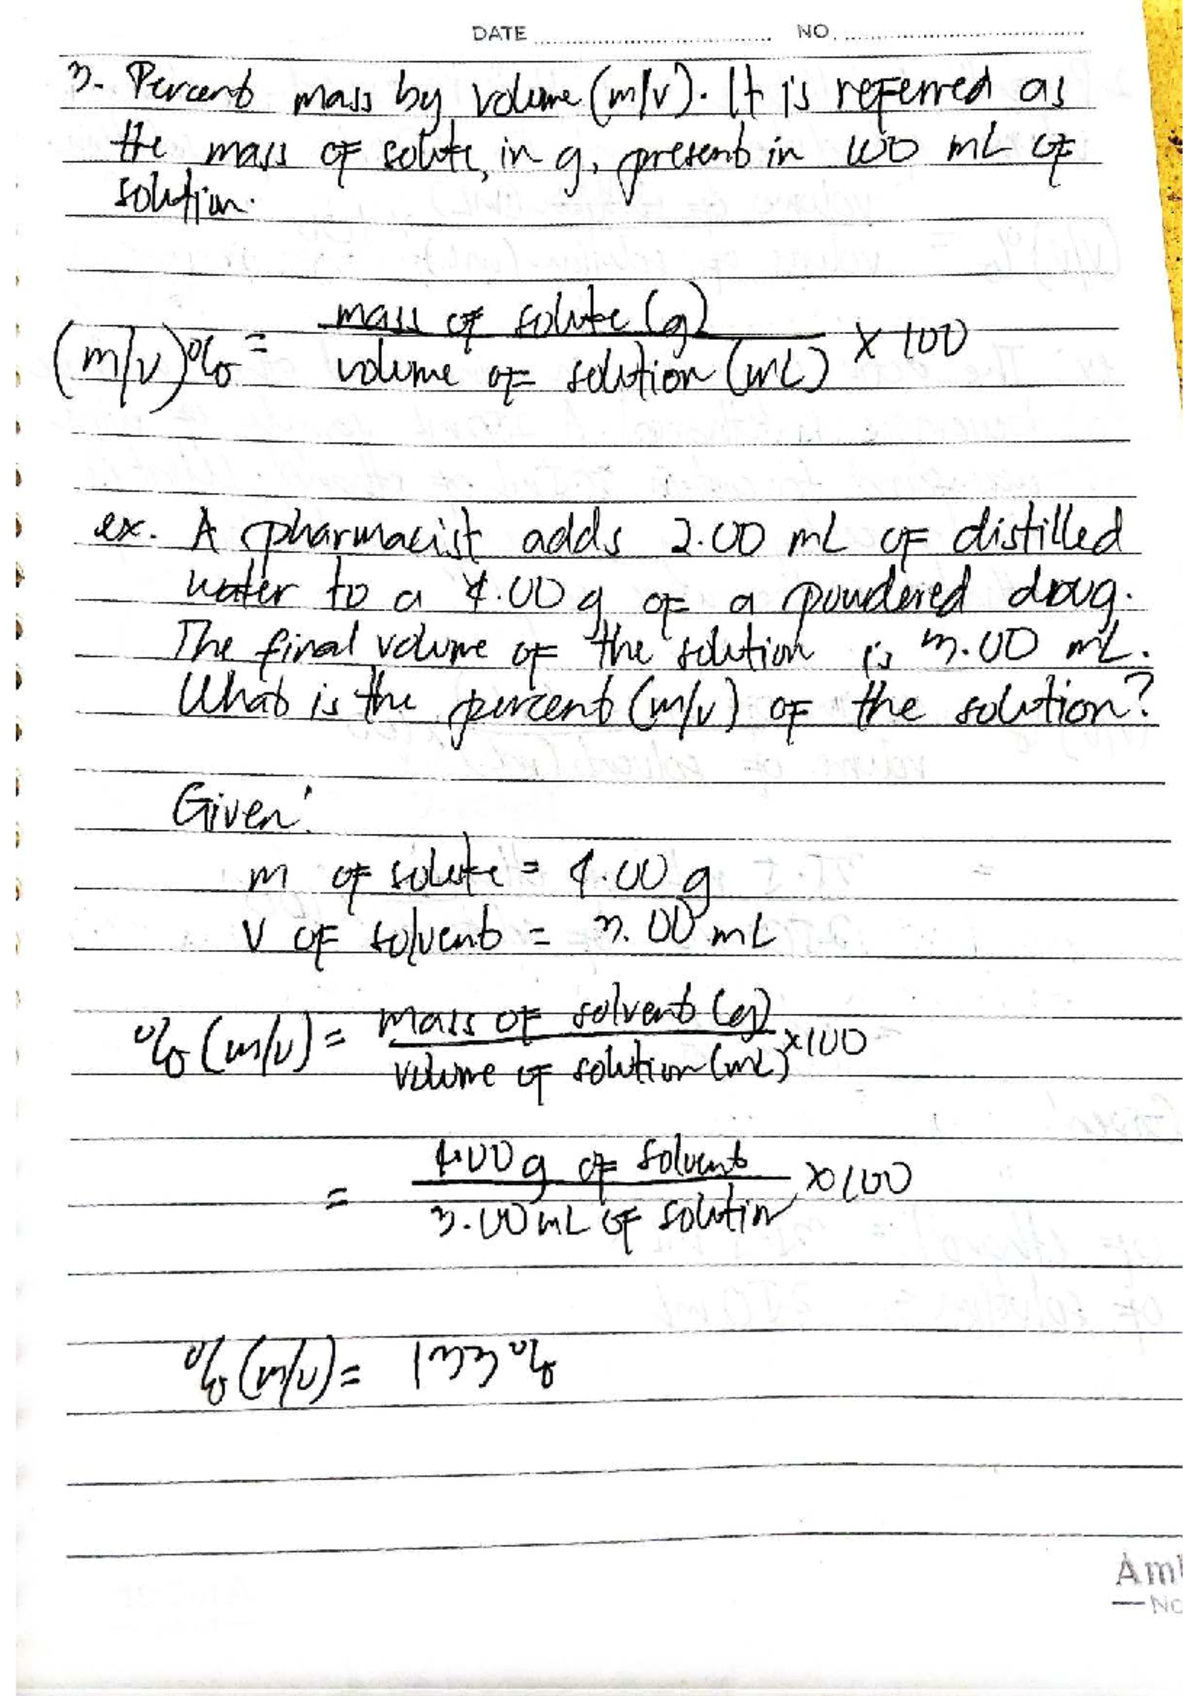 DATE NO.
3. Percent mass by volume (m/v). It is referred as
the mass of solute, in g, present in 100 mL of
solution.
(m/v)% = mass of solute (g) / volume of solution (mL) x 100
ex. A pharmacist adds 2.00 mL of distilled
water to a 4.00 g of a powdered drug.
The final volume of the solution is 3.00 mL.
What is the percent (m/v) of the solution?
Given:
m of solute = 4.00 g
V of solvent = 3.00 mL
% (m/v) = mass of solvent (g) / volume of solution (mL) x 100
= 4.00 g of solvent / 3.00 mL of solution x 100
% (m/v) = 133 %